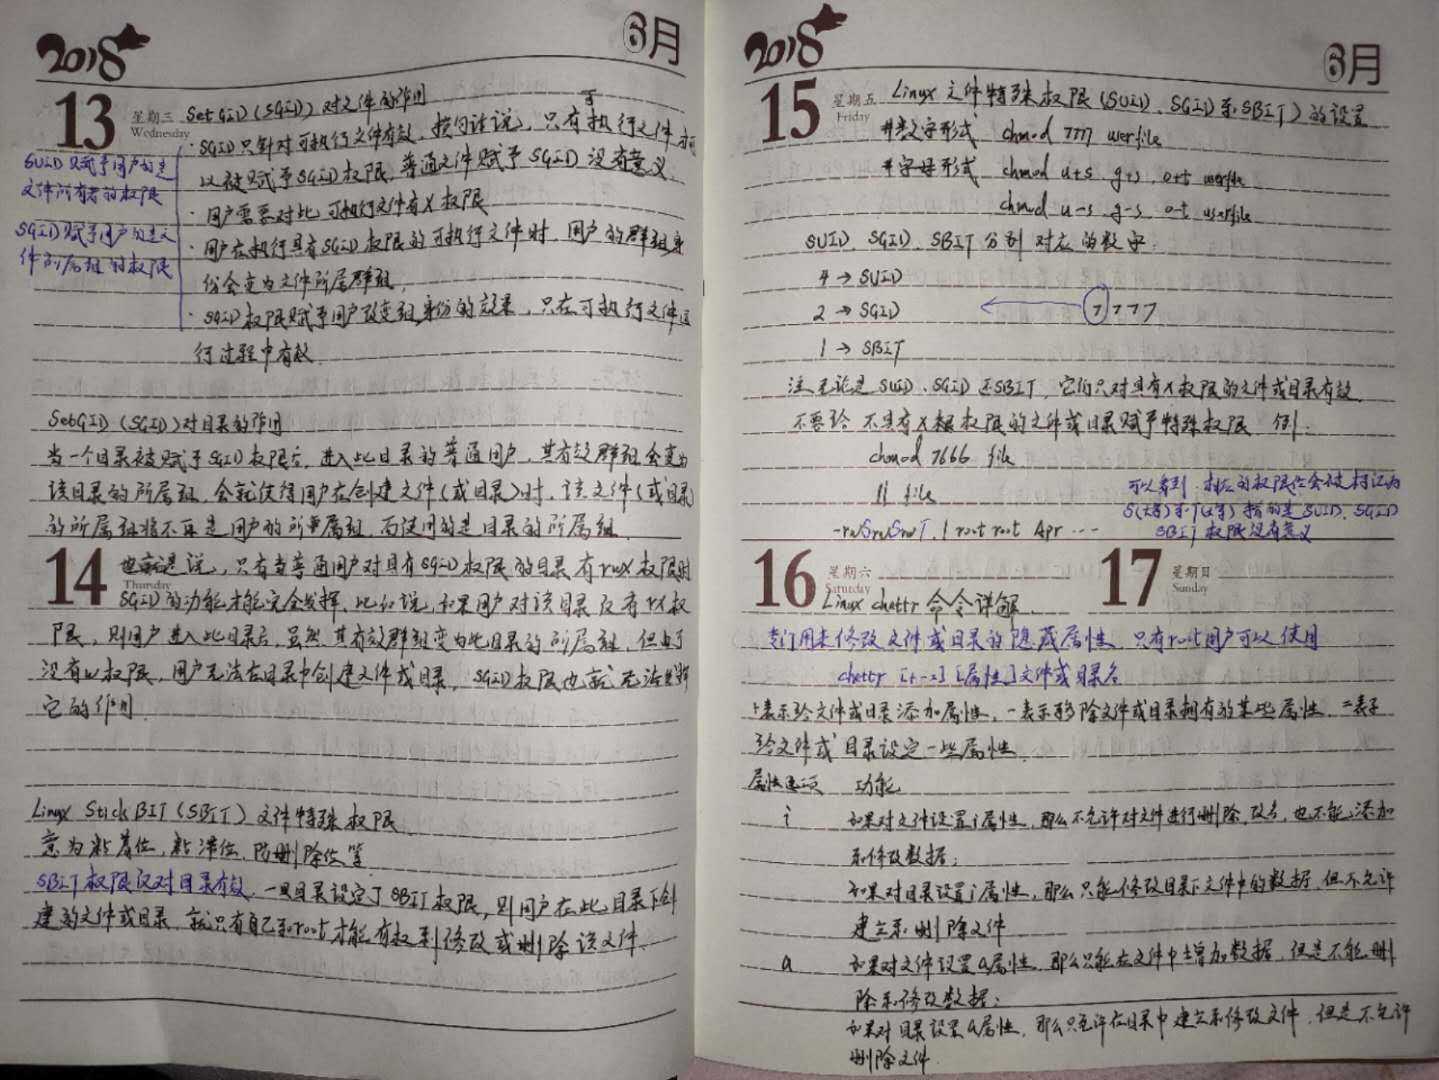 2018
6月
13
星期三
Wednesday
SetGID(SGID)对文件的作用
·SGID只针对可执行文件有效,换句话说,只有可执行文件才可
以被赋予SGID权限,普通文件赋予SGID没有意义.
·用户需要对此可执行文件有x权限
·用户在执行具有SGID权限的可执行文件时,用户的群组身
份会变为文件所属群组.
·SGID权限赋予用户改变组身份的效果,只在可执行文件运
行过程中有效
SUID赋予用户的是
文件所有者的权限
SGID赋予用户的是文
件所属组的权限
SetGID(SGID)对目录的作用
当一个目录被赋予SGID权限后,进入此目录的普通用户,其有效群组会变为
该目录的所属组,会就使得用户在创建文件(或目录)时,该文件(或目录)
的所属组将不再是用户的所属组,而使用的是目录的所属组.
14
Thursday
也就是说,只有当普通用户对具有SGID权限的目录有rwx权限时
SGID的功能才能完全发挥,比如说,如果用户对该目录仅有rx权
限,则用户进入此目录后,虽然其有效群组变为此目录的所属组,但由于
没有w权限,用户无法在目录中创建文件或目录,SGID权限也就无法发挥
它的作用.
Linux Stick BIT(SBIT)文件特殊权限
意为粘着位,粘滞位,防删除位等
SBIT权限仅对目录有效,一旦目录设定了SBIT权限,则用户在此目录下创
建的文件或目录,就只有自己和root才能有权利修改或删除该文件.
2018
6月
15
星期五
Friday
Linux 文件特殊权限(SUID、SGID和SBIT)的设置
#数字形式 chmod 7777 userfile
#字母形式 chmod u+s g+s o+t userfile
chmod u-s g-s o-t userfile
SUID、SGID、SBIT分别对应的数字:
4→SUID
2→SGID 7777
1→SBIT
注无论是SUID、SGID还SBIT,它们只对具有x权限的文件或目录有效.
不要给不具有x权限的文件或目录赋予特殊权限 例:
chmod 7666 file
ll file
-rwSrwSrwT. 1 root root Apr ...
可以看到,相应的权限位会被标记为
S(大写)和T(大写)指的是SUID、SGID
SBIT权限没有意义
16
星期六
Saturday
17
星期日
Sunday
Linux chattr 命令详解
专门用来修改文件或目录的隐藏属性,只有root用户可以使用
chattr [+-=] [属性]文件或目录名
+表示给文件或目录添加属性,-表示移除文件或目录拥有的某些属性,=表示
给文件或目录设定一些属性.
属性选项 功能
i 如果对文件设置i属性,那么不允许对文件进行删除,改名,也不能添加
和修改数据;
如果对目录设置i属性,那么只能修改目录下文件中的数据,但不允许
建立和删除文件
a 如果对文件设置a属性,那么只能在文件中增加数据,但是不能删
除和修改数据;
如果对目录设置a属性,那么只允许在目录中建立和修改文件,但是不允许
删除文件.